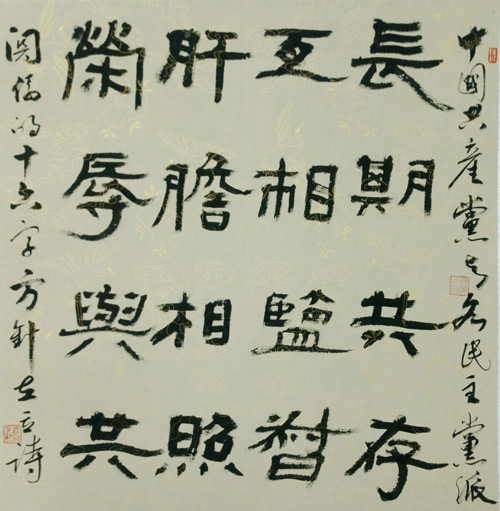 中國共產黨与各民主黨派
長期共存
互相監督
肝膽相照
榮辱與共
関係的十六字方針